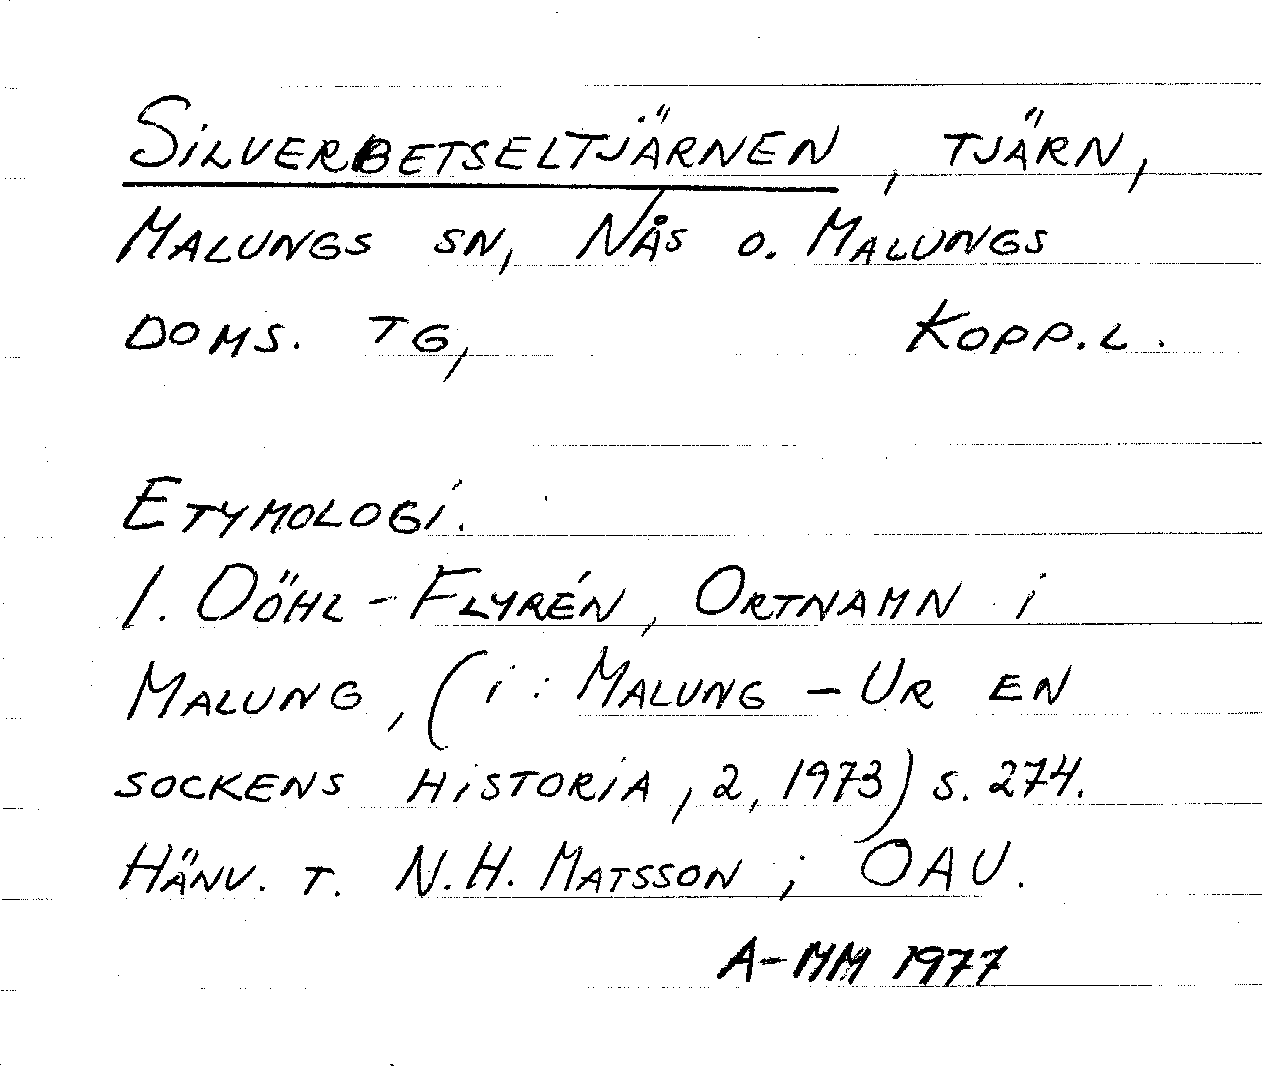 SILVERBETSELTJÄRNEN, TJÄRN,
MALUNGS SN, NÅS O. MALUNGS
DOMS. TG, KOPP.L.
ETYMOLOGI.
I. DÖHL-FLYRÉN, ORTNAMN I
MALUNG, (I: MALUNG - UR EN
SOCKENS HISTORIA, 2, 1973) S. 274.
HÄNV. T. N.H. MATSSON; OAU.
A-MM 1977